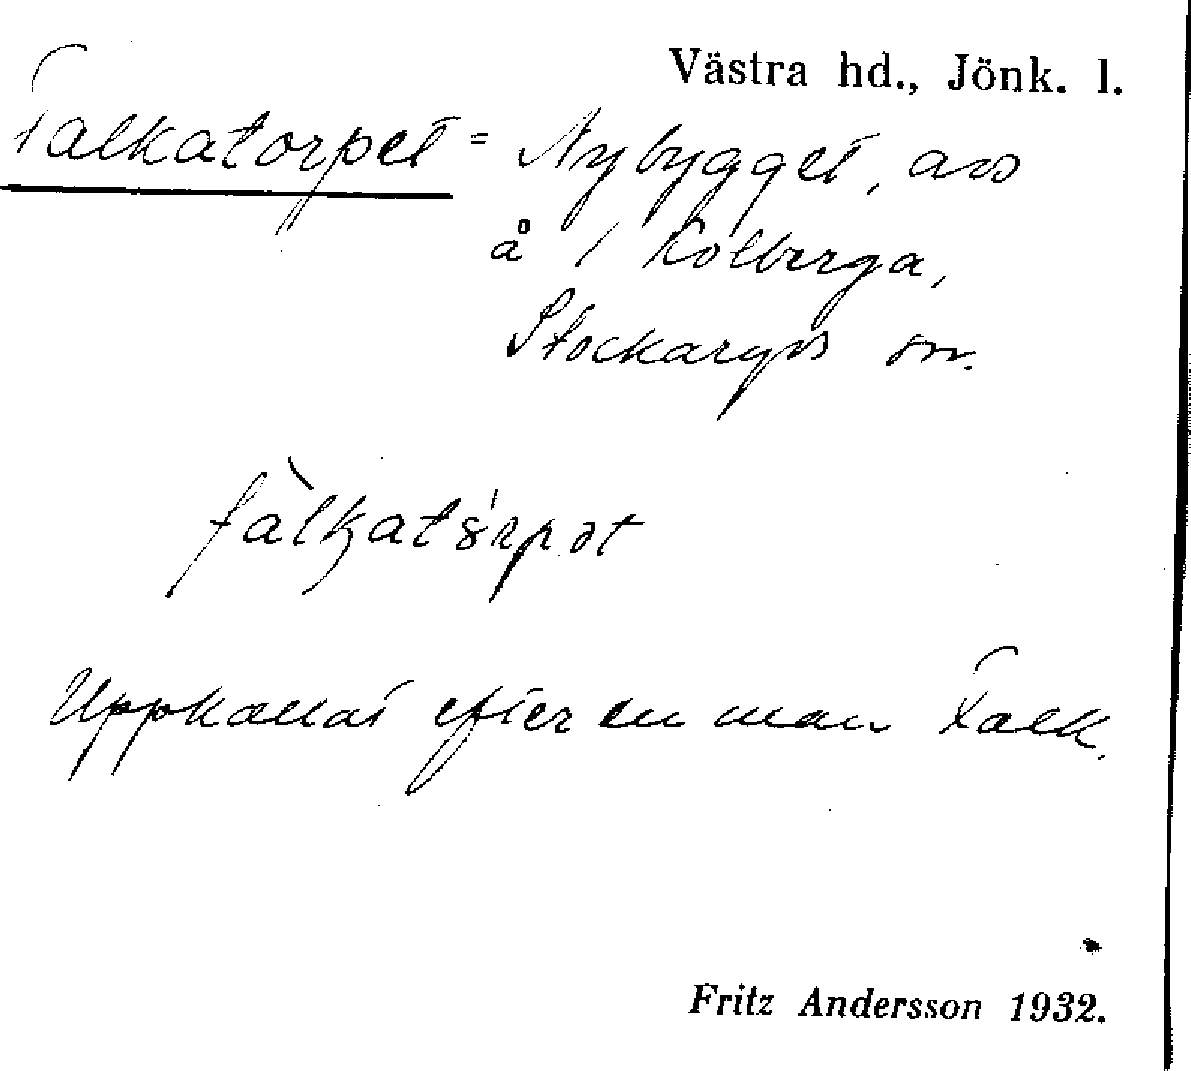 Västra hd., Jönk. l.
Falkatorpet = Nybygget, avs
å 1 Kolberga,
Stockaryds sn.
fàlkatórpət
Uppkallat efter en man Falk.
Fritz Andersson 1932.